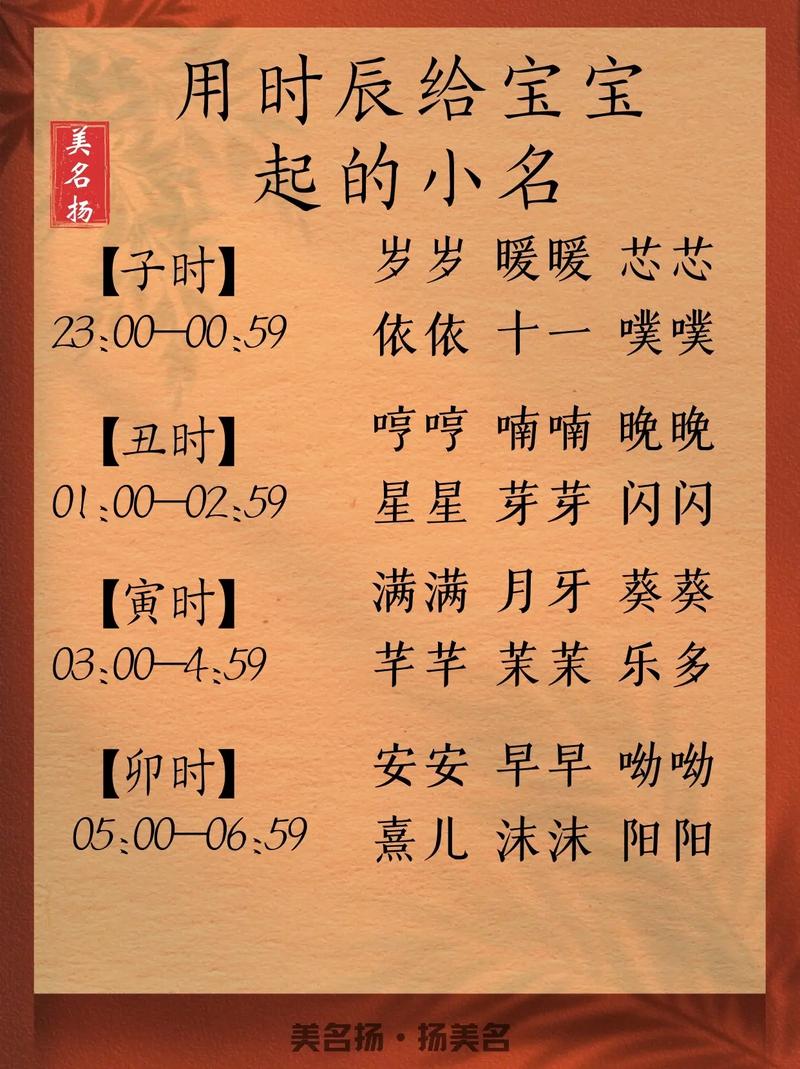 用时辰给宝宝
起的小名
美名扬
【子时】
23:00—00:59
岁岁 暖暖 芯芯
依依 十一 噗噗
【丑时】
01:00—02:59
哼哼 喃喃 晚晚
星星 芽芽 闪闪
【寅时】
03:00—4:59
满满 月牙 葵葵
芊芊 茉茉 乐多
【卯时】
05:00—06:59
安安 早早 呦呦
熹儿 沫沫 阳阳
美名扬·扬美名